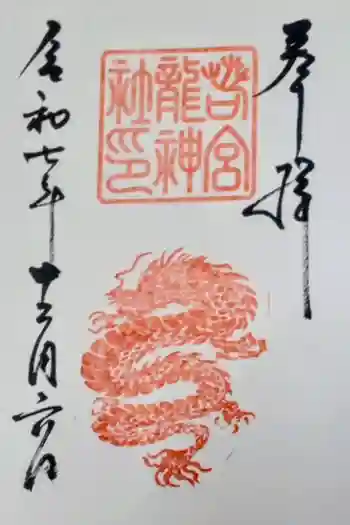 奉拝
若宮
龍神
社印
令和七年十二月六日